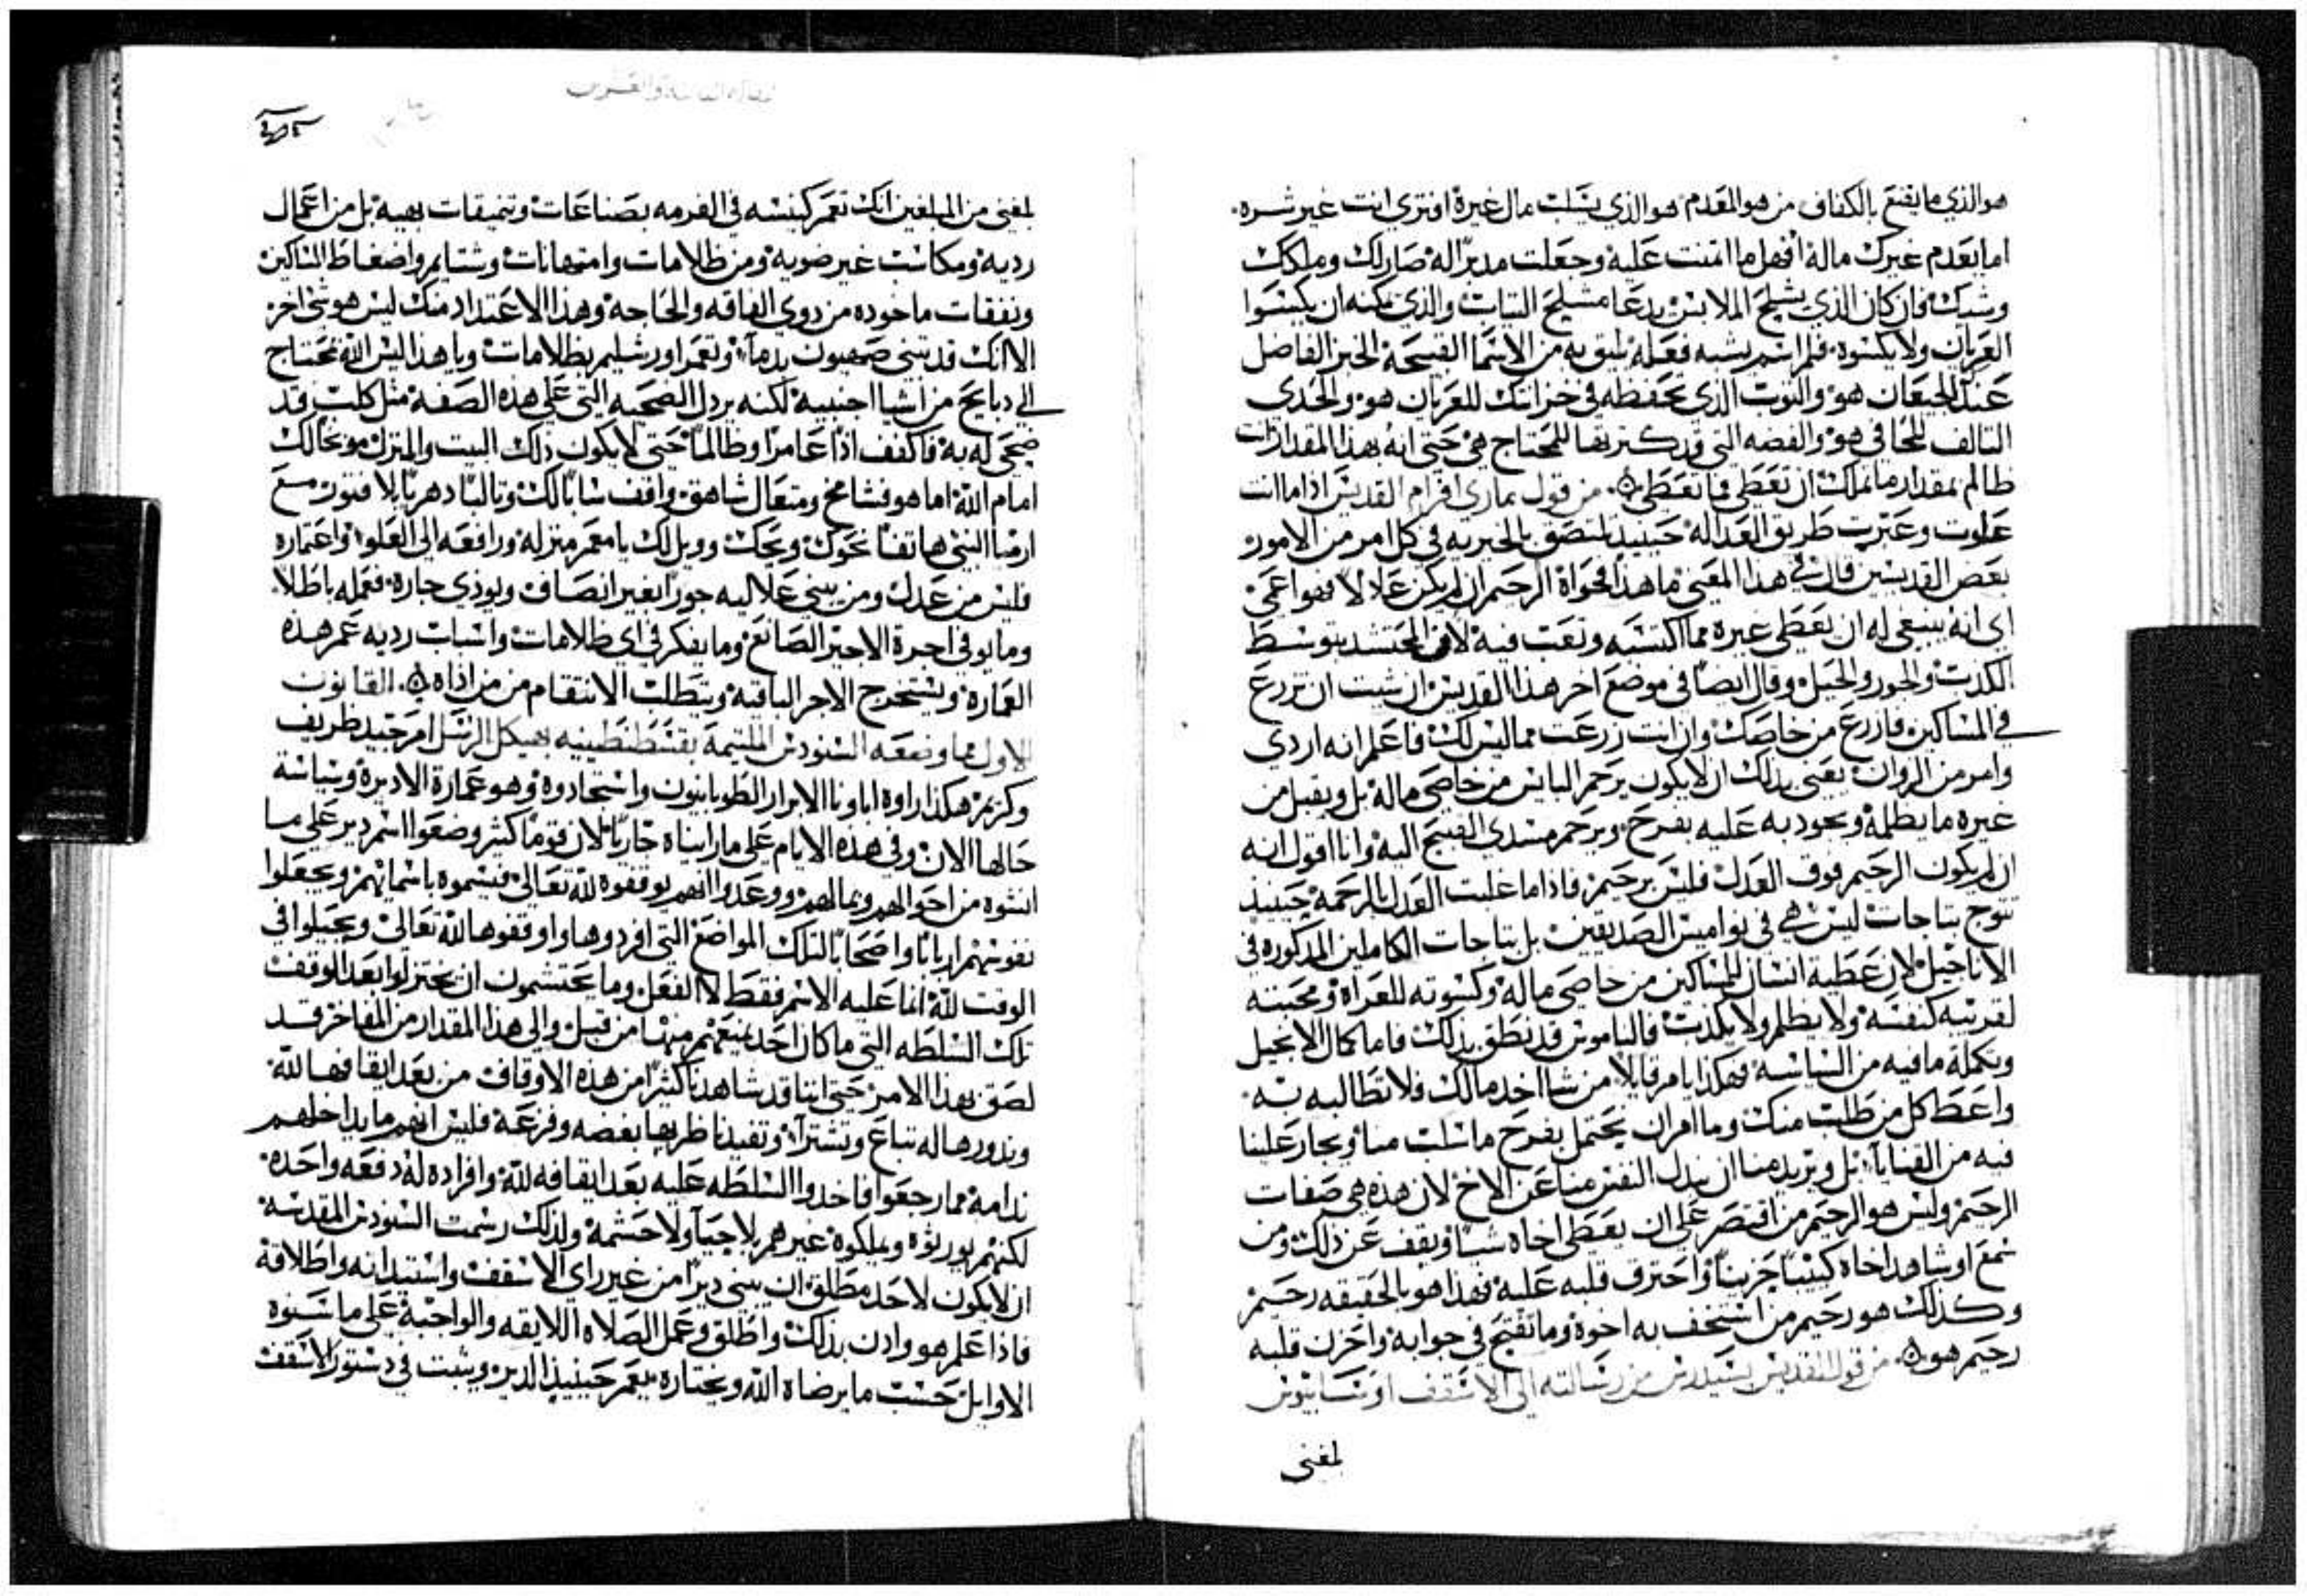 هو الذي ما يقنع بالكفاف من هو المعدم هو الذي يسلب مال غيره افترى انت غير شره.
اما يعدم غيرك ماله افهل ما ائتمنت عليه وجعلت مدبراً له صار لك وملكك
وشبك فان كان الذي يشلح الملابس يدعا مشلح التياب والذي يمكنه ان يكسوا
العريان ولا يكسوه. فلم اسم يشبه فعله يليق به من الاسما القبيحة الخبز الفاضل
عندك للجيعان هو والتوب الذي تحفظه في خزانتك للعريان هو والحدى
التالف للحافي هو والفضه التي قد كنزتها للمحتاج هي حتى انه بهذا المقدار انت
ظالم بمقدار ما يمكنك ان تعطي فما تعطي ۞ من قول ماري افرام القديس اذا ما انت
علوت وعبرت طريق العداله حينيذ تلتصق بالحريه في كل امر من الامور
بعض القديسين قال في هذا المعنى ما هذا فحواه الرحيم ان لم يكن عدلاً فهو اعمى
اي انه ينبغي له ان يعطي غيره مما اكتسبه وتعب فيه لا من المحتشد بتوسط
الكدب والجور والحيل وقال ايضا في موضع اخر هذا القديس ان شيت ان تزرع
في المساكين فازرع من خاصك وان انت زرعت مما ليس لك فاعلم انه اردى
وامر من الزوان يعنى بذلك ان لا يكون يرحم البايس من خاصى ماله بل ويقبل من
غيره ما يظلمه ويجود به عليه بفرح. ويرحم مسدى القبيح اليه وانا اقول انه
ان لم يكون الرحيم فوق العدل فليس برحيم فاذا ما غلبت العدل بالرحمة حينيذ
تتوج بتاجات ليس هي في نواميس الصديقين بل بتاجات الكاملين المدكوره في
الاناجيل لان عطية انسان للمساكين من خاصى ماله وكسوته للعراه ومحبته
لقريبه كنفسه ولا يظلم ولا يكدب فالناموس قد نطق بذلك فاما كمال الانجيل
وتكملة ما فيه من السياسه فهكذا يامر قايلاً من شا اخد مالك فلا تطالبه به.
واعط كل من طلب منك وما امر ان يحتمل بفرح ما سلب منا ويجار علينا
فيه من القنايا بل ويريد منا ان نبدل النفس منا عن الاخ لان هذه هي صفات
الرحيم وليس هو الرحيم من اقتصر على ان يعطى اخاه شياً ويقف عن ذلك ومن
سمع او شاهد اخاه كيئباً حزيناً واحترق قلبه عليه فهذا هو بالحقيقه رحيم
وكذلك هو رحيم من استخف به اخوه وما تقبح في جوابه واحزن قلبه
رحيم هو ۞ من قول القديس يسيدرس من رسالته الى الاسقف اوسابيوس
لمغنى
لمغنى من المبلغين انك تعمر كنيسه في الفرمه بصناعات وتنميقات بهيه بل من اعمال
رديه ومكاسب غير ضويه ومن ظلامات وامتهانات وشتايم واضغاط المساكين
ونفقات ماخوده من دوى الفاقه والحاجه وهذا الاعتداد منك ليس هو شي اخر
الا انك قد تبنى صهيون بدمآ وتعمر اورشليم بظلامات ويا هذا ليس الله محتاج
الى دبايح من اشيا اجنبيه لكنه يردل الضحيه التي على هذه الصفه مثل كلب قد
ضحى له به فاكفف اذاً عامراً وظالماً حتى لا يكون ذلك البيت والمنزل موبخاً لك
امام الله اما هو فشامخ ومتعال شاهق واقف شاباً لك وتالباً دهرياً بلا فتور مع
ارميا النبى هاتفاً نحوك ويحك وويل لك يا معمر منزله ورافعه الى العلو واعتماره
فليس من عدل ومن يبني علاليه جوراً بغير انصاف ويوذي جاره. فعمله باطلاً.
وما يوفى اجرة الاجير الصانع وما يفكر في اي ظلامات واسباب رديه عمر هذه
العماره ويستخرج الاجر الباقيه ويتطلب الانتقام من من اذاه ۞ القانون
الاول مما وضعه السنودس الملتيمة بقسطنطينيه بهيكل الرسل امر جيد ظريف
وكريم هكذا راوه اباونا الابرار الطوبانيون واستجادوه وهو عمارة الاديره وسياسة
حالها الان وفي هذه الايام على ما رايناه جارياً لان قوماً كثير وضعوا اسم دير على ما
انشوه من احوالهم وبمالهم ووعدوا انهم يوقفوه لله تعالى فيسموه باسمايهم ويجعلوا
نفوسهم ارباباً واصحاباً لتلك المواضع التي افردوها واوقفوها لله تعالى ويحيلوا في
الوقت لله انما عليه الاسم فقط لا الفعل وما يحتشمون ان يختزلوا بعد الوقف
تلك السلطه التي ما كان احد يمنعهم منها من قبل والى هذا المقدار من المفاخر قد
لصق بهذا الامر حتى اننا قد شاهدنا كثيراً من هذه الاوقاف من بعد ايقافها لله.
وندورها له تباع وتشترآ وتفيد ناظريها بغضه وفزعة فليس انهم ما يداخلهم
ندامة مما رجعوا فاخدوا السلطه عليه بعد ايقافه لله وافراده له دفعه واحده.
لكنهم يورثوه ويملكوه غيرهم بلا حيآ ولا حشمة ولذلك رسمت السنودس المقدسه
ان لا يكون لاحد مطلق ان يبني ديراً من غير راى الاسقف واستيدانه واطلاقه
فاذا علم هو وادن بذلك واطلق وعمل الصلاه اللايقه والواجبة على ما سنوه
الاوايل حسب ما يرضاه الله ويختاره يعمر حينيذ الدير ويثبت في دستور الاسقف